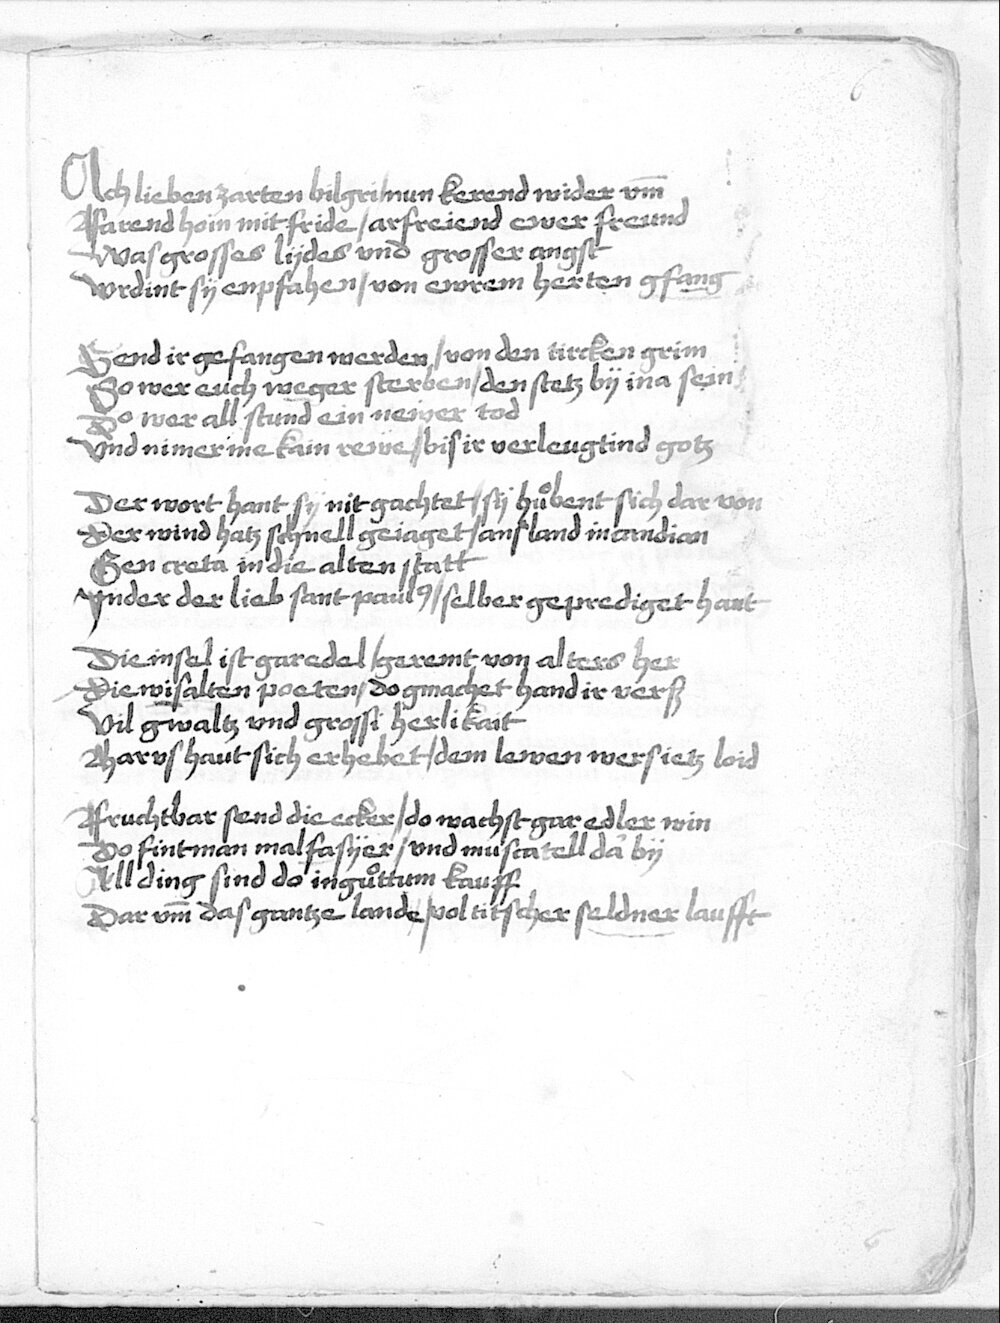 6
Ach lieben zarten bilgri/nun kerend wider vm̅
Ffarend hoin mit fride/arfreiend ewer freund
Was grosses lijdes vnd grosser angst
Wrdint sij enpfahen/von ewrem herten gfang
Send ir gefangen werden/von den tircken grim
So wer euch weger sterben/den stetz bij in a sein
Do wer all stund ein neiwer tod
Vnd nimer me kain rewe/bis ir verleugtind gotz
Der wort hant sij nit gachtet/sij hůbent sich dar von
Der wind hatz schnell geiaget/ans land in candian
Gen creta in die alten statt
Jnder der lieb sant paulꝰ/selber geprediget haut
Die insel ist gar edel/geremt von alters her
Die wisalten poeten/do gmachet hand ir verß
Vil gwaltz vnd grossi herlikait
Mar vs haut sich erhebet/dem lewen wers ietz loid
Ffruchtbar send die ecker/do wachst gar edler win
Do fint man malfasijer/vnd muscatell da bij
All ding sind do in gůttum kauff
Dar vm̅ das gantze lande/vol titscher seldner laufft